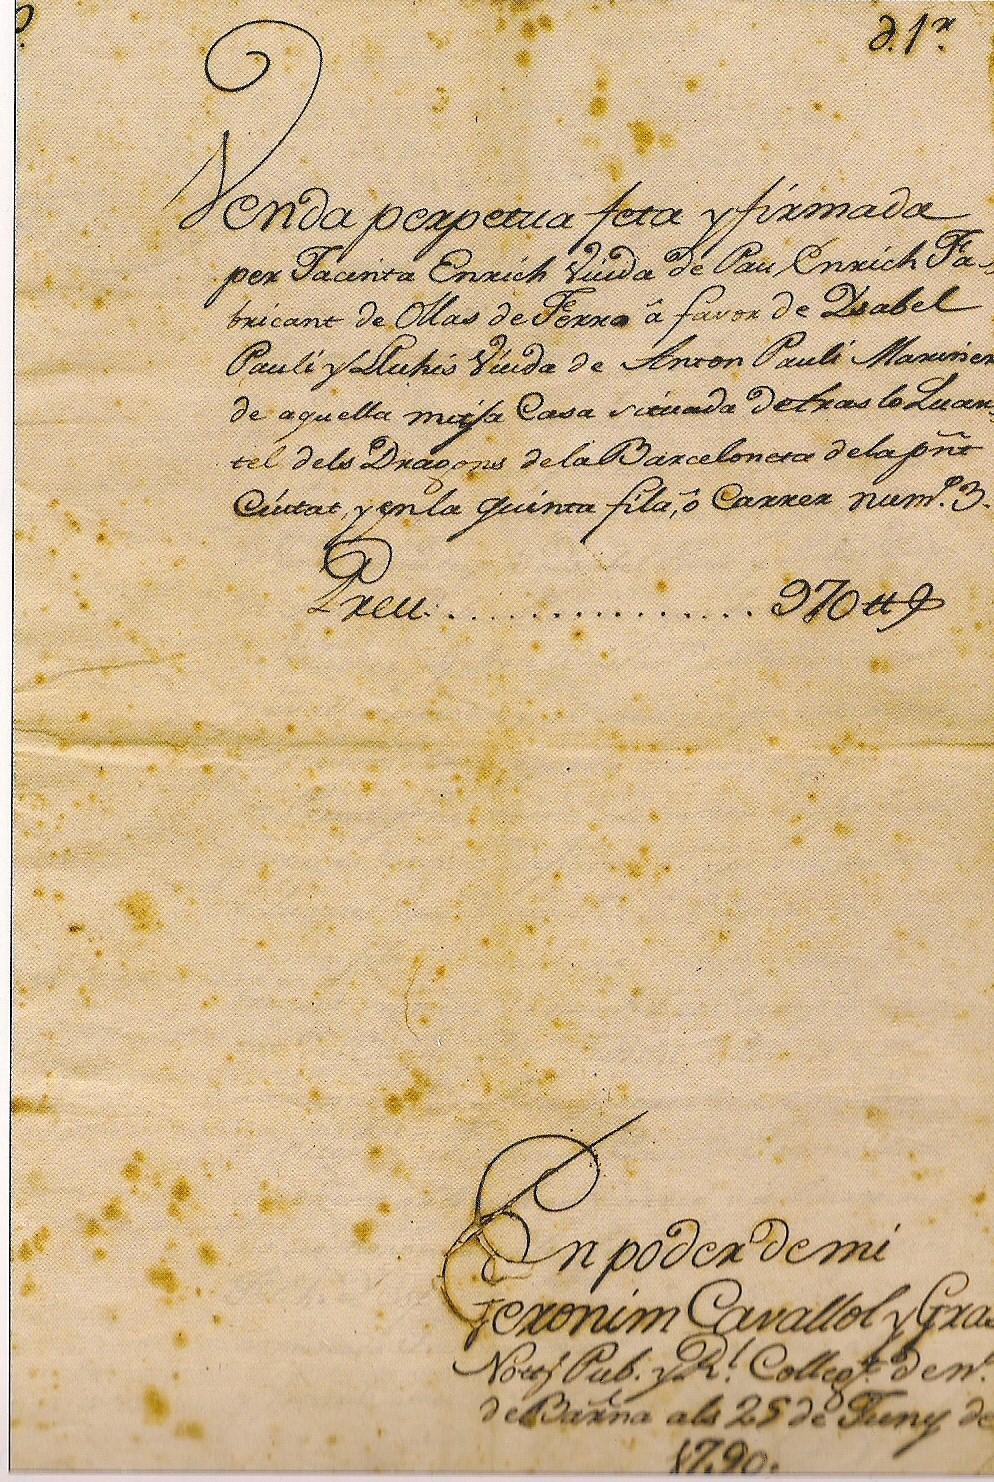 d. 1ʳ.
Venda perpetua feta y firmada
per Jacinta Enrich Viuda de Pau Enrich Fa-
bricant de Ollas de Ferro â favor de Ysabel
Pauli y Lluhis Viuda de Anton Pauli Mariner
de aquella mitja Casa situada detras lo Quar-
tel dels Dragons de la Barceloneta de la pñt
Ciutat, y en la quinta fila, ô Carrer num.º 3.
Preu. . . . . . . . . . . . . . . . 970 ₶
En poder de mi
Jeronim Cavallol y Gras
Pub. y Rˡ. Colleg.ᵗ de nº.
de Barña als 25 de Juny de
1790.